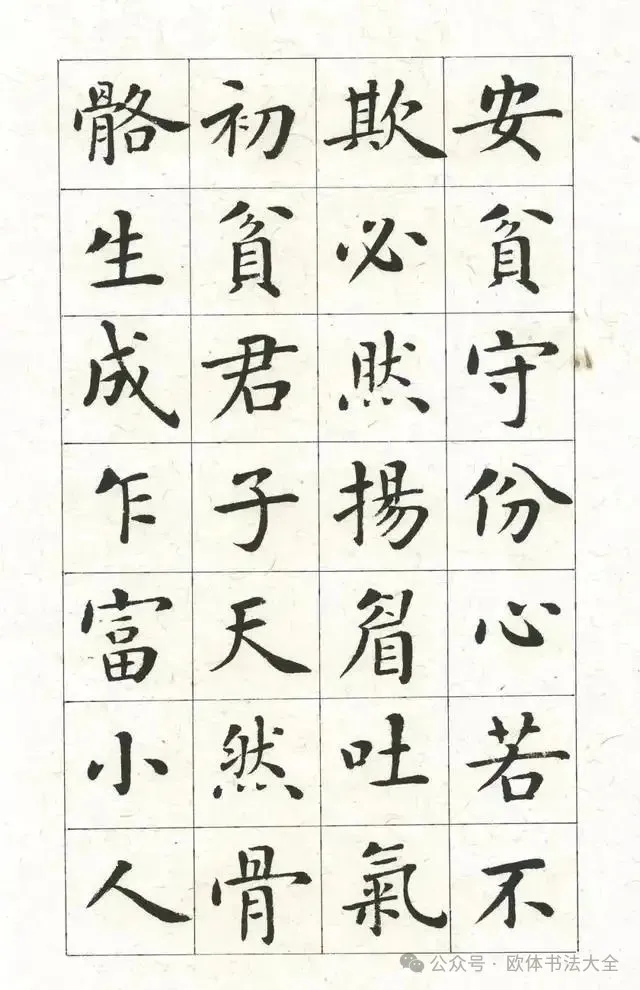 安貧守份心若不
欺必然揚眉吐氣
初貧君子天然骨
骼生成乍富小人
公众号 · 欧体书法大全